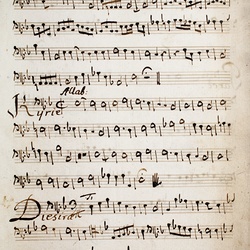 Allab:
Kyrie
Dies irae